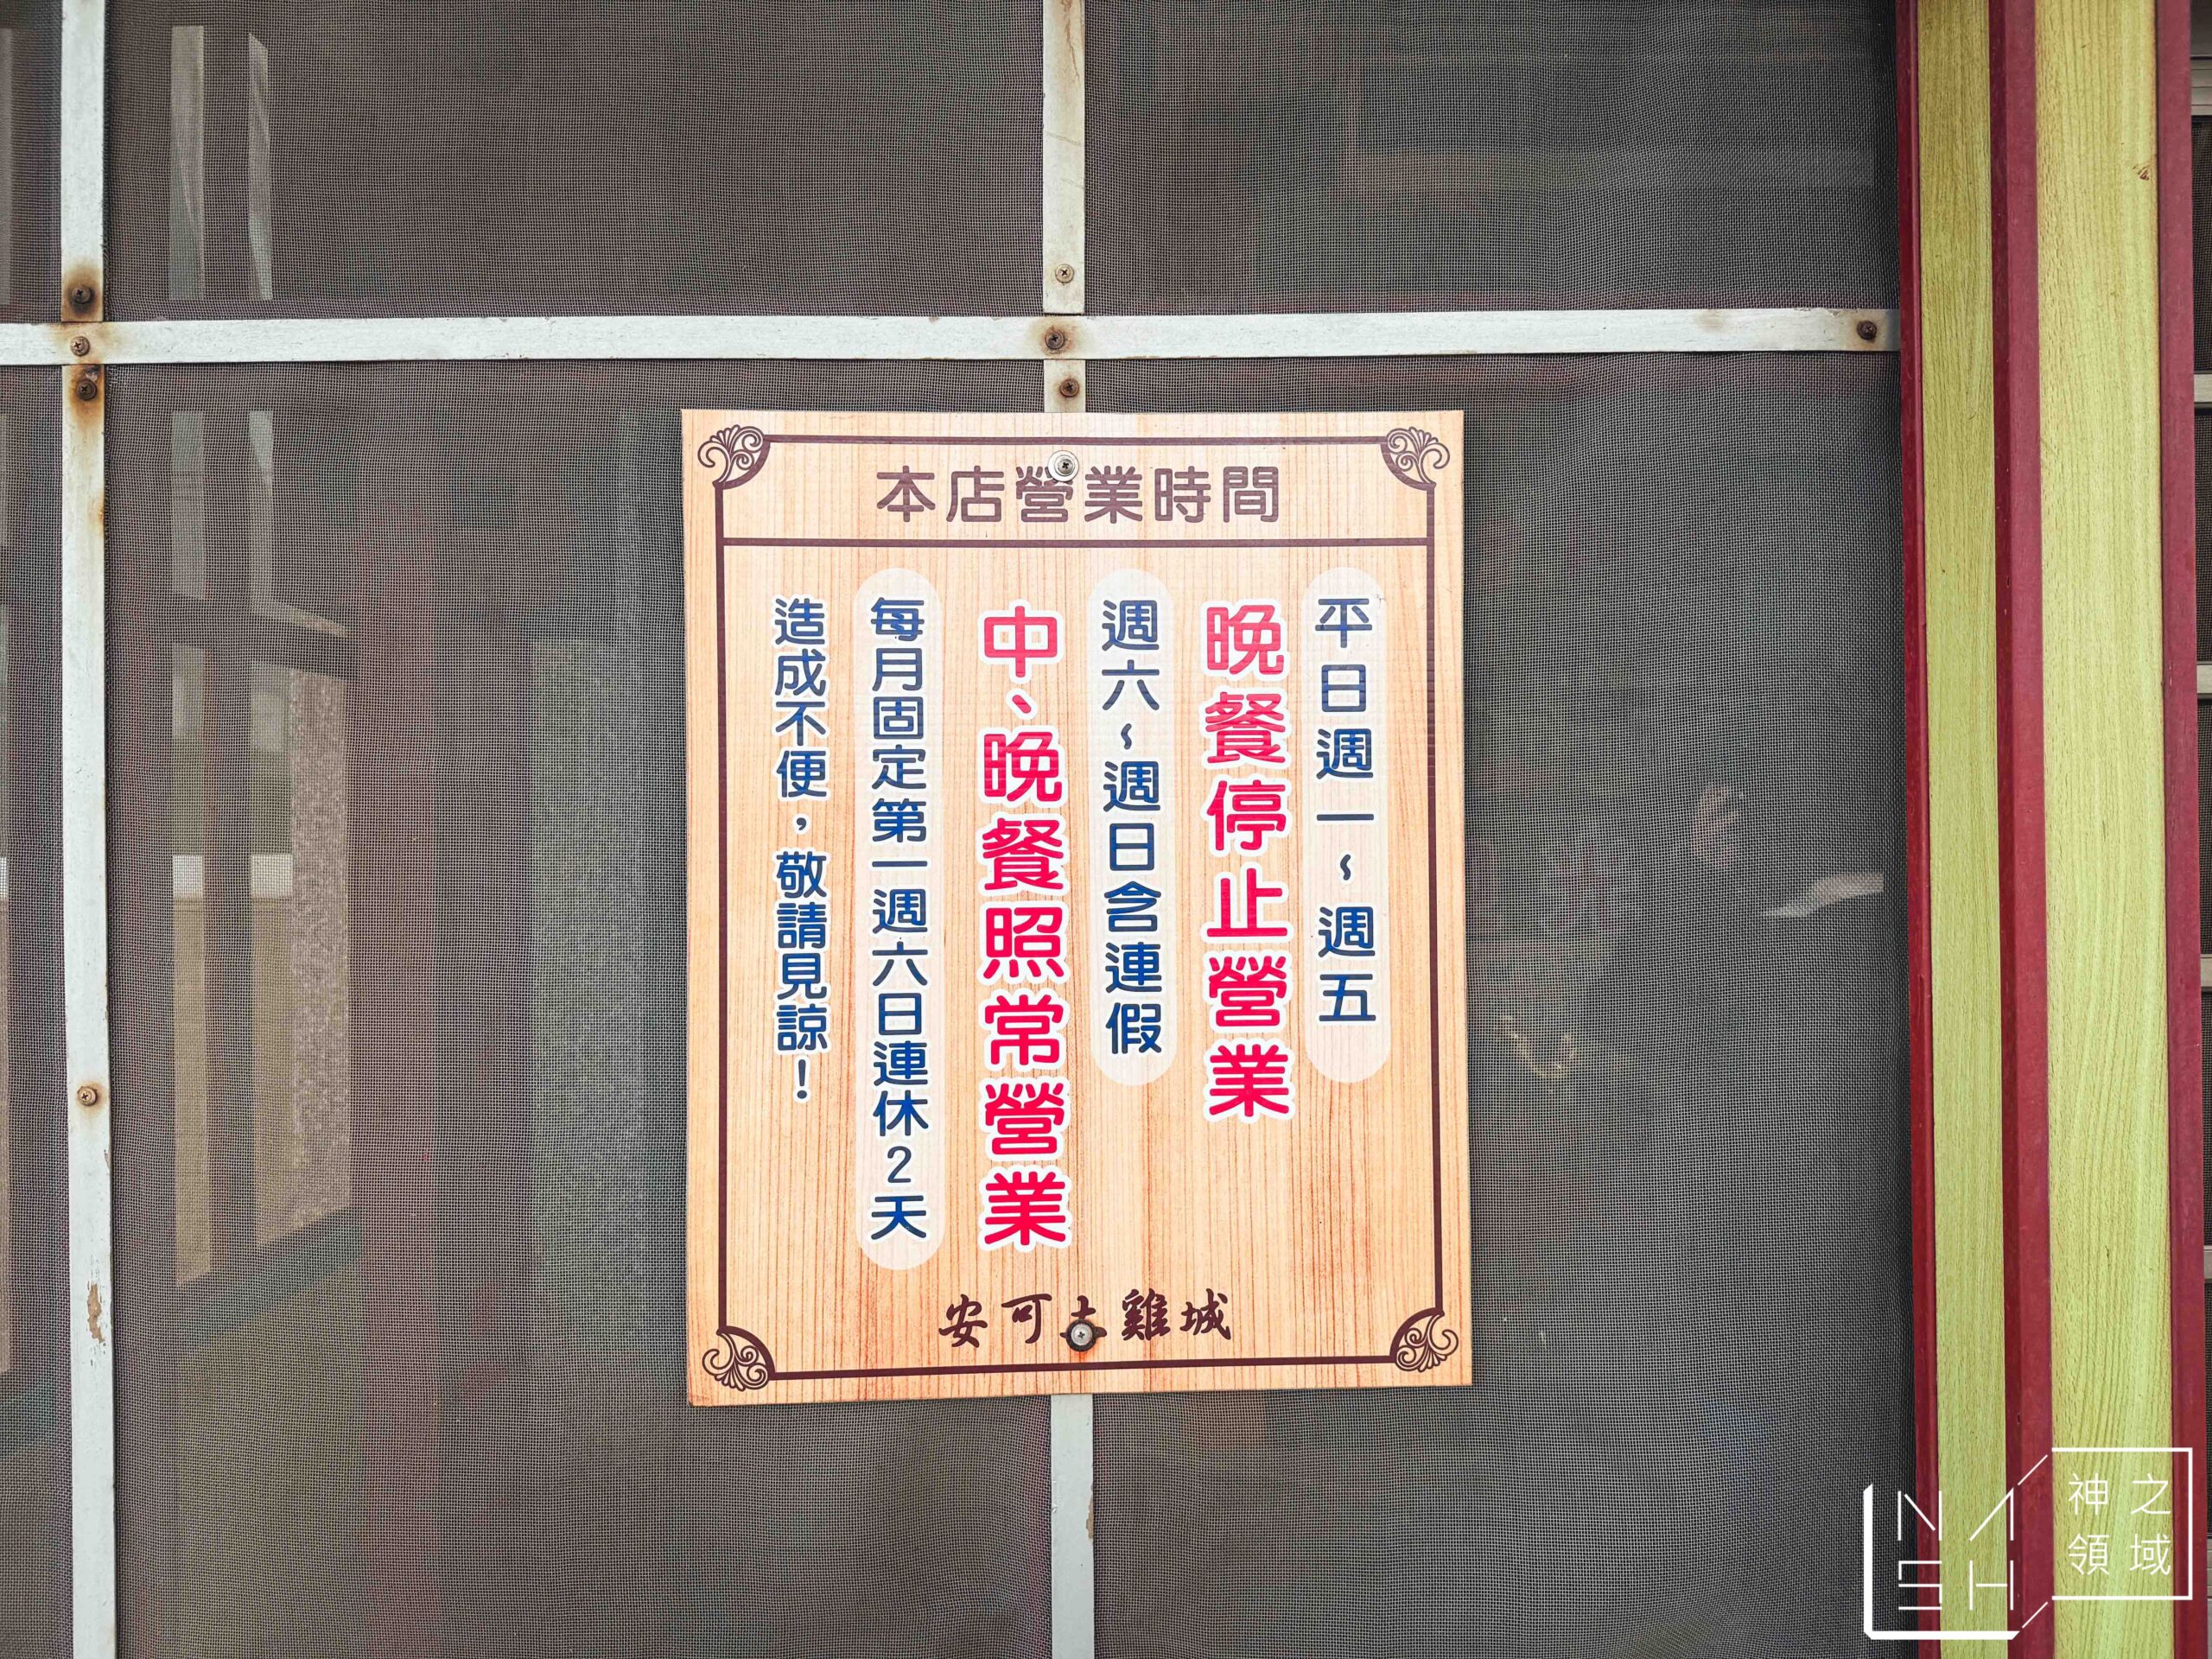 本店營業時間
平日週一~週五
晚餐停止營業
週六~週日含連假
中、晚餐照常營業
每月固定第一週六日連休2天
造成不便，敬請見諒！
安可土雞城
NASH
神之領域